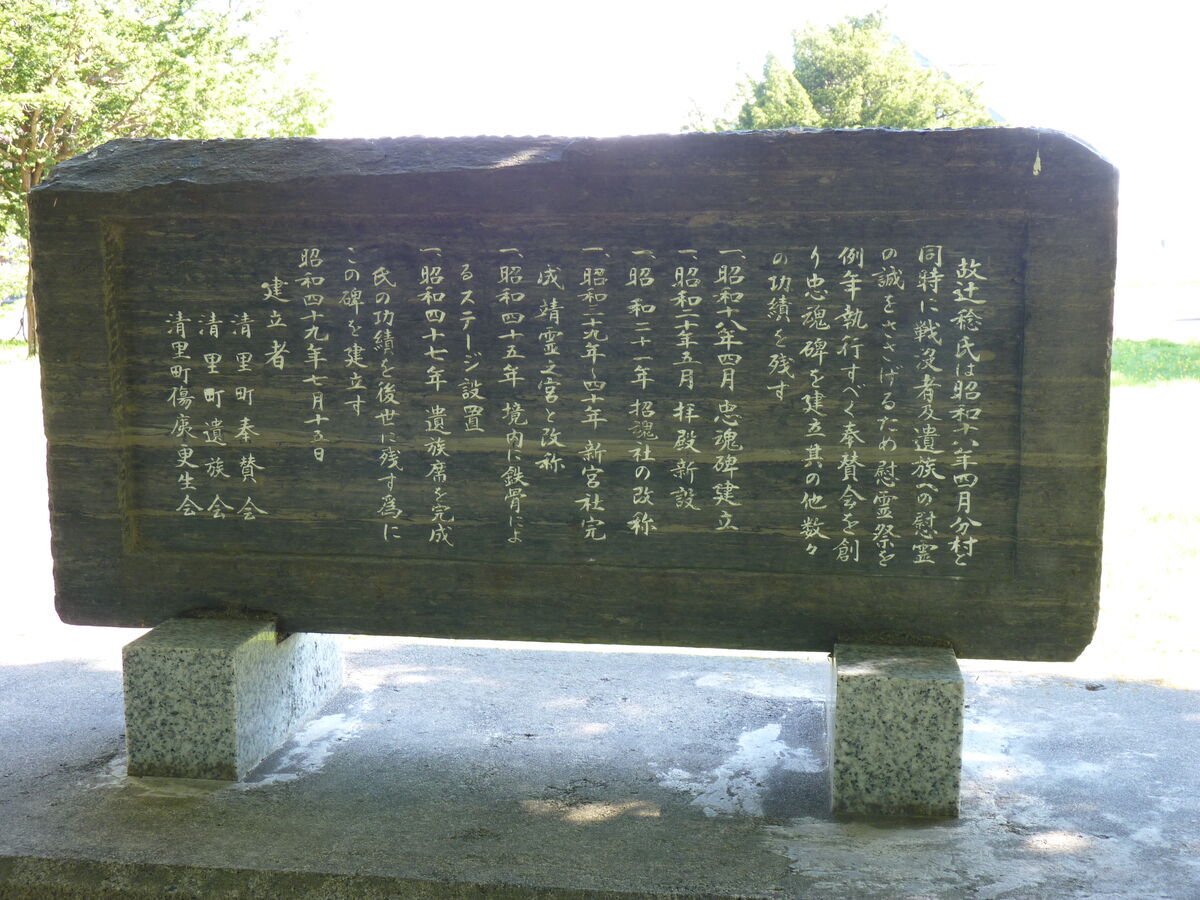 故辻稔氏は昭和十八年四月分村と
同時に戦没者及遺族への慰霊
の誠をささげるため慰霊祭を
例年執行すべく奉賛会を創
り忠魂碑を建立其の他数々
の功績を残す
一、昭和十八年四月 忠魂碑建立
一、昭和二十年五月 拝殿新設
一、昭和二十一年 招魂社の改称
一、昭和三十九年~四十年 新宮社完
成靖霊之宮と改称
一、昭和四十五年 境内に鉄骨によ
るステージ設置
一、昭和四十七年 遺族席を完成
氏の功績を後世に残す為に
この碑を建立す
昭和四十九年七月十五日
建立者
清里町奉賛会
清里町遺族会
清里町傷痍更生会